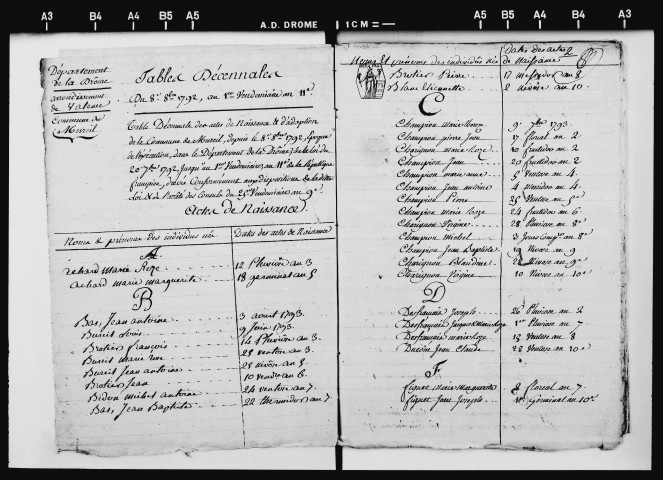 A3 A4 B4 B5 A5 A.D. DROME 1 CM A5 B5 B4 A4 A3
Département
de la Drôme
arrondissement
de Valence
Commune de
Montil
Tables Décennales
Du 8.e 8.bre 1792, au 1.er Vendemiaire an 11.e
Table Décennale des actes de Naissance & d'adoption
de la Commune de Monteil, depuis le 8.e 8.bre 1792, Epoque
de l'exécution, dans le Département de la Drôme, de la loi du
20 7.bre 1792, jusqu'au 1.er Vendemiaire, an 11.e de la République
française, dressée Conformement aux dispositions de la ditte
loi & de l'arrêté des Consuls du 25 Vendemiaire an 9.e
Actes de Naissance.
Noms & prénoms des individus nés Dates des actes de Naissance
A
Achard Marie Roze 12 Pluviose an 3
Achard marie marguerite 18 germinal an 5
B
Bas, Jean antoine 3 aout 1793
Buret Louis 9 Juin 1793
Brotier françois 14 Pluviose an 3.
Buret Marie 25 ventose an 3.
Buret Jean antoine 25 nivose an 5
Brotier Jean 10 vendre an 6.
Bidon michel antoine 24 ventose an 7.
Bas, Jean Baptiste 22 thermidor an 7
Noms & prénoms des individus nés Dates des actes 2
de Naissance
Brotier Pierre 17 Messidor an 8
Blanc Etiennette 2 nivose an 10.
C
Champion Marie 9 7.bre 1793
Champion pierre Jean 17 floreal an 2
Champion marie Roze 10 fructidor an 2
Champion Jean 20 fructidor an 2
Champion marie anne 5 Ventose an 4.
Champion Jean antoine 4 Messidor an 4.
Champion Pierre 25 Ventose an 5.e
Champion Marie Roze 24 fructidor an 6
Charignon Régine 28 Pluviose an 8.e
Champion Michel 3 Jours Comp.res an 8.e
Champion Jean Baptiste 19 Nivose an 9
Charignon Blandine 22 Nivose an 9.e
Charignon Régine 10 Nivose an 10.e
D
Desfrançais Joseph 26 Pluviose an 2
Desfrançais Jacques 1.er Pluviose an 7
Desfrançais marie Roze 15 Ventose an 8
Jean Claude 28 Ventose an 10.e
F
figuet Marie Marguerite 8 floreal an 7.
figuet Jean Joseph 11 Germinal an 10.e